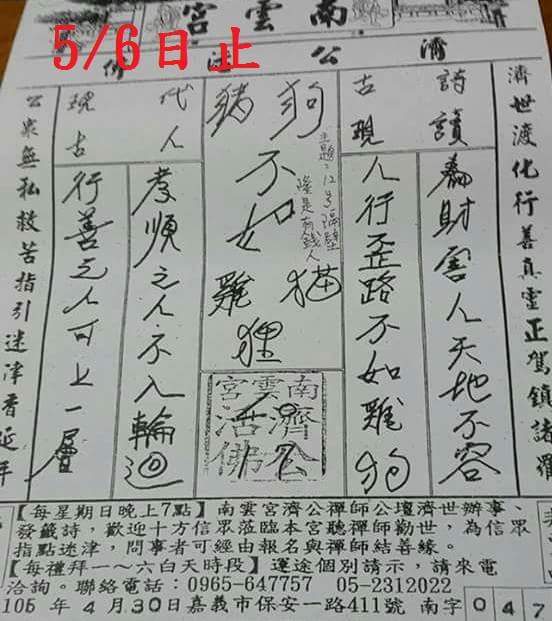 南雲宮
5/6日止
濟公活佛
濟世渡化行善真靈正駕鎮諸
詩讀古現
財害人天地不容
人行歪路不如雞狗
狗豬
主題:12字隔壁
誰是有錢人
不如
貓雞狸
南雲宮
濟公活佛
代人現古
孝順之人不入輪迴
行善之人可上一層
公眾無私救苦指引迷津香延年
【每星期日晚上7點】南雲宮濟公禪師公壇濟世辦事、
發籤詩,歡迎十方信眾蒞臨本宮聽禪師勸世,為信眾
指點迷津,問事者可經由報名與禪師結善緣。
【每禮拜一~六白天時段】運途個別請示,請來電
洽詢。聯絡電話:0965-647757 05-2312022
105年4月30日嘉義市保安一路411號 南字047